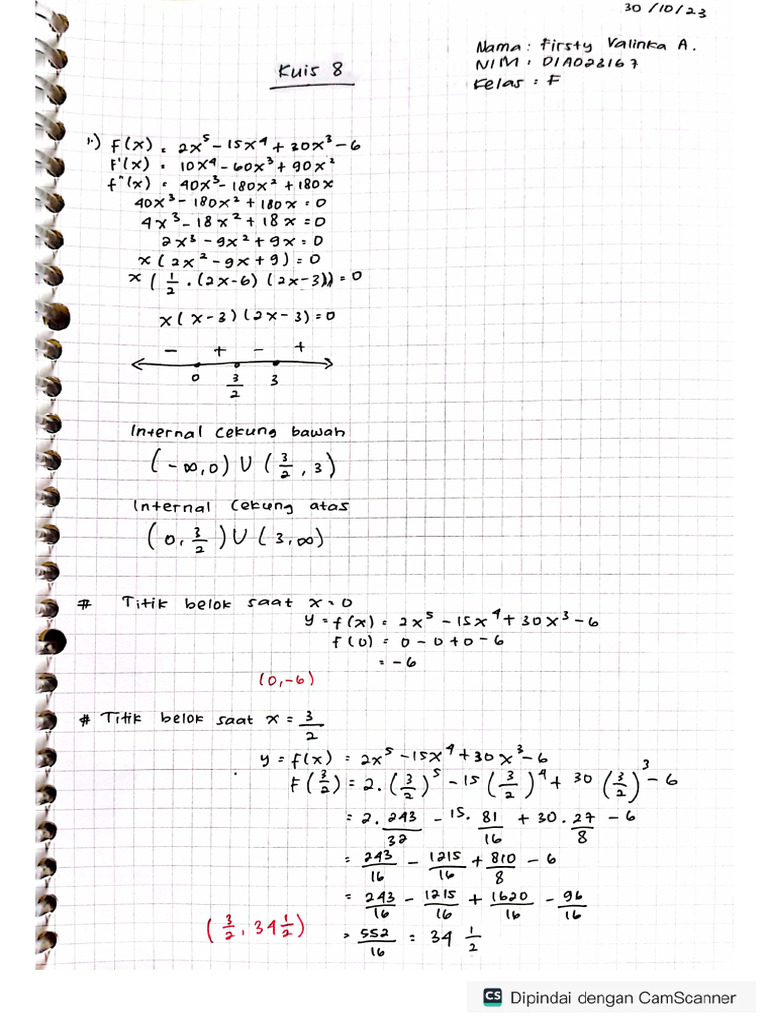 30/10/23
Nama : Firsty Valinka A.
NIM : D1A023167
Kelas : F
Kuis 8
1.) f(x) = 2x⁵ - 15x⁴ + 30x³ - 6
f'(x) = 10x⁴ - 60x³ + 90x²
f"(x) = 40x³ - 180x² + 180x
40x³ - 180x² + 180x = 0
4x³ - 18x² + 18x = 0
2x³ - 9x² + 9x = 0
x(2x² - 9x + 9) = 0
x(1/2 . (2x-6)(2x-3)) = 0
x(x-3)(2x-3) = 0
- + - +
0 3/2 3
Internal cekung bawah
(-∞,0) ∪ (3/2, 3)
Internal cekung atas
(0, 3/2) ∪ (3, ∞)
# Titik belok saat x = 0
y = f(x) = 2x⁵ - 15x⁴ + 30x³ - 6
f(0) = 0 - 0 + 0 - 6
= -6
(0,-6)
# Titik belok saat x = 3/2
y = f(x) = 2x⁵ - 15x⁴ + 30x³ - 6
F(3/2) = 2.(3/2)⁵ - 15(3/2)⁴ + 30(3/2)³ - 6
= 2. 243/32 - 15. 81/16 + 30. 27/8 - 6
= 243/16 - 1215/16 + 810/8 - 6
= 243/16 - 1215/16 + 1620/16 - 96/16
(3/2, 34 1/2) = 552/16 = 34 1/2
CS Dipindai dengan CamScanner